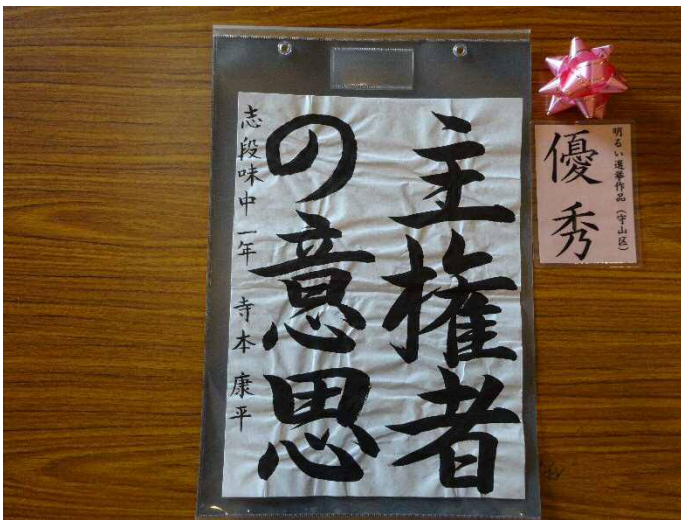 主権者
の意思
志段味中 一年 寺本 康平
明るい選挙作品（守山区）
優秀